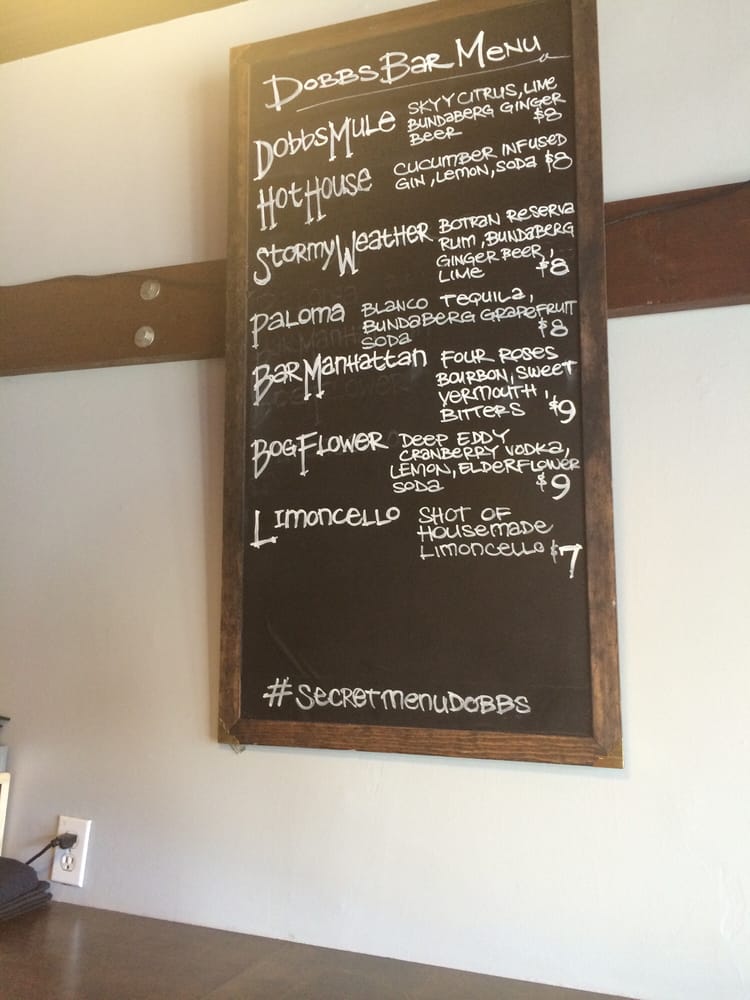 Dobbs Bar Menu
Dobbs Mule SKYY CITRUS, LIME
BUNDABERG GINGER
BEER $8
Hot House CUCUMBER INFUSED
GIN, LEMON, SODA $8
Stormy Weather BOTRAN RESERVA
RUM, BUNDABERG
GINGER BEER,
LIME $8
Paloma BLANCO TEQUILA,
BUNDABERG GRAPEFRUIT
SODA $8
Bar Manhattan FOUR ROSES
BOURBON, SWEET
VERMOUTH,
BITTERS $9
Bog Flower DEEP EDDY
CRANBERRY VODKA,
LEMON, ELDERFLOWER
SODA $9
Limoncello SHOT OF
HOUSEMADE
LIMONCELLO $7
#SecretMenuDobbs